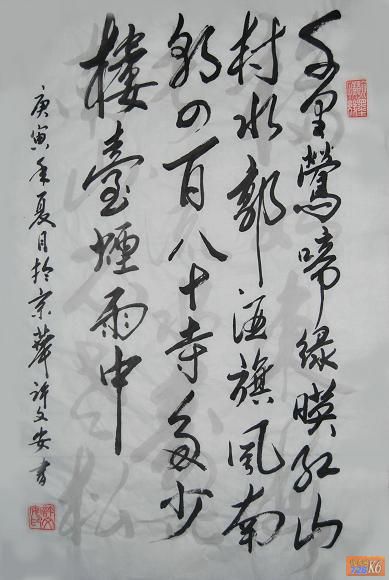 千里鶯啼緑暎紅山
村水郭酒旗風南
朝四百八十寺多少
樓臺煙雨中
庚寅年夏月於京華許文安書
K6